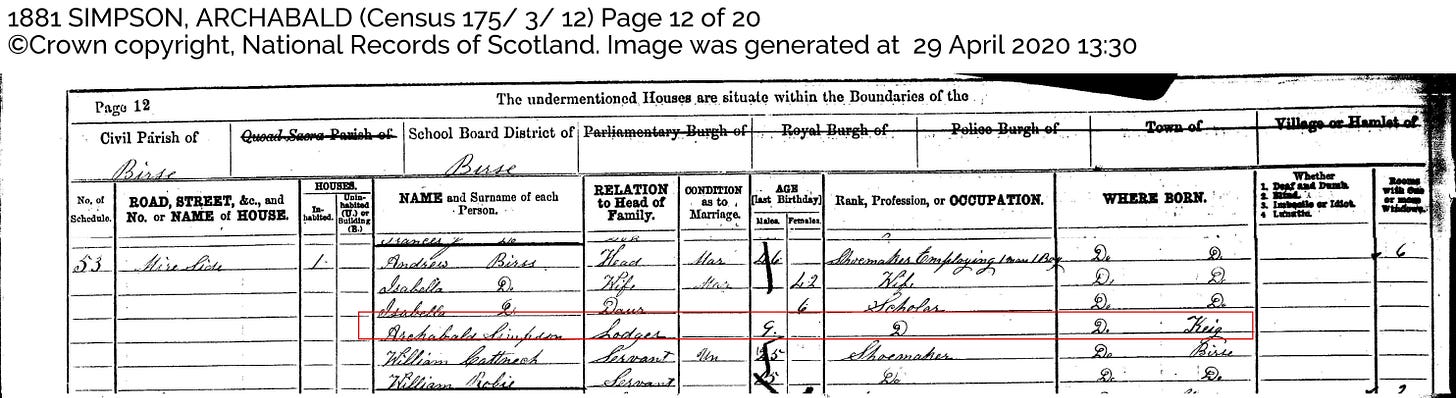 1881 SIMPSON, ARCHABALD (Census 175/ 3/ 12) Page 12 of 20
©Crown copyright, National Records of Scotland. Image was generated at 29 April 2020 13:30
Page 12
The undermentioned Houses are situate within the Boundaries of the
Civil Parish of Quoad Sacra Parish of School Board District of Parliamentary Burgh of Royal Burgh of Police Burgh of Town of Village or Hamlet of
Birse Birse
No. of Schedule. ROAD, STREET, &c., and No. or NAME of HOUSE. HOUSES. In-habited. Unin-habited (U.) or Building (B.) NAME and Surname of each Person. RELATION to Head of Family. CONDITION as to Marriage. AGE [last Birthday] Males. Females. Rank, Profession, or OCCUPATION. WHERE BORN. Whether 1. Deaf and Dumb. 2. Blind. 3. Imbecile or Idiot. 4 Lunatic. Rooms with One or more Windows.
53 Mire Side 1 Andrew Birss Head Mar 46 Shoemaker Employing 1 man 1 Boy Do. Do. 6
Isabella Do. Wife Mar 42 Wife Do. Do.
Isabella Do. Daur 6 Scholar Do. Do.
Archabald Simpson Lodger 9. D Do. Keig
William Cattnech Servant Un 25 Shoemaker Do Birse
William Robie Servant Do Do. Do.